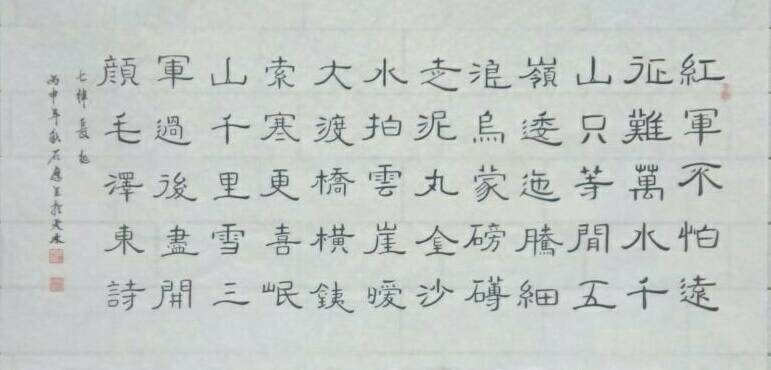 紅軍不怕遠
征難萬水千
山只等閒五
嶺逶迤騰細
浪烏蒙磅礴
走泥丸金沙
水拍雲崖暖
大渡橋橫銕
索寒更喜岷
山千里雪三
軍過後盡開
顏毛澤東詩
七律長征
丙申年秋